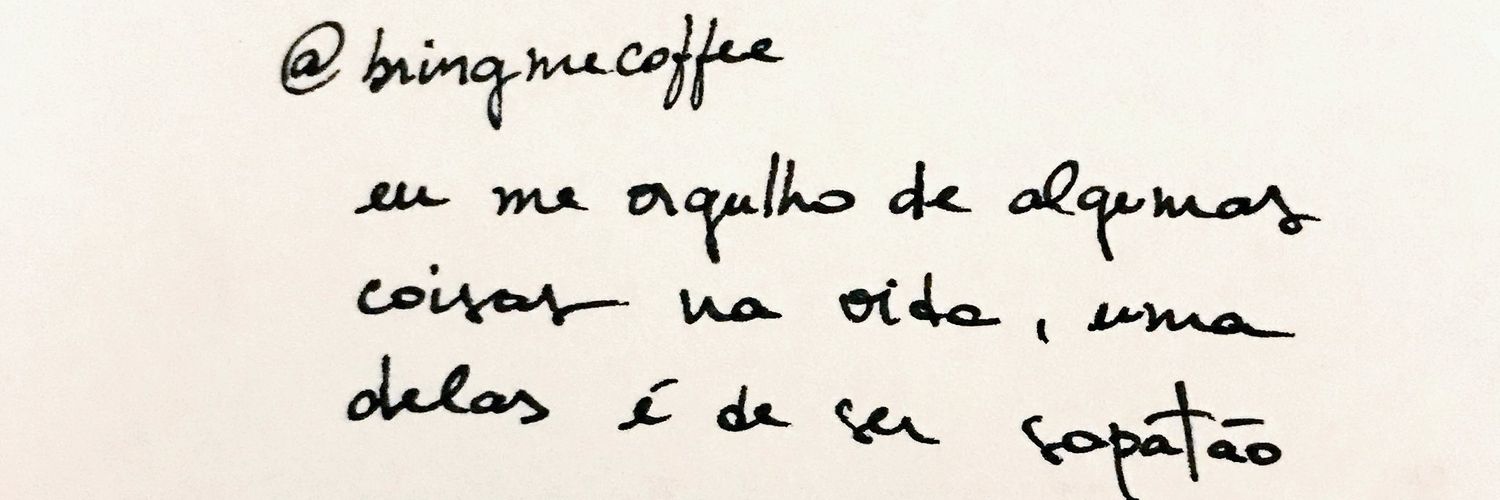 @bringmecoffee
eu me orgulho de algumas
coisas na vida, uma
delas é de ser sapatão